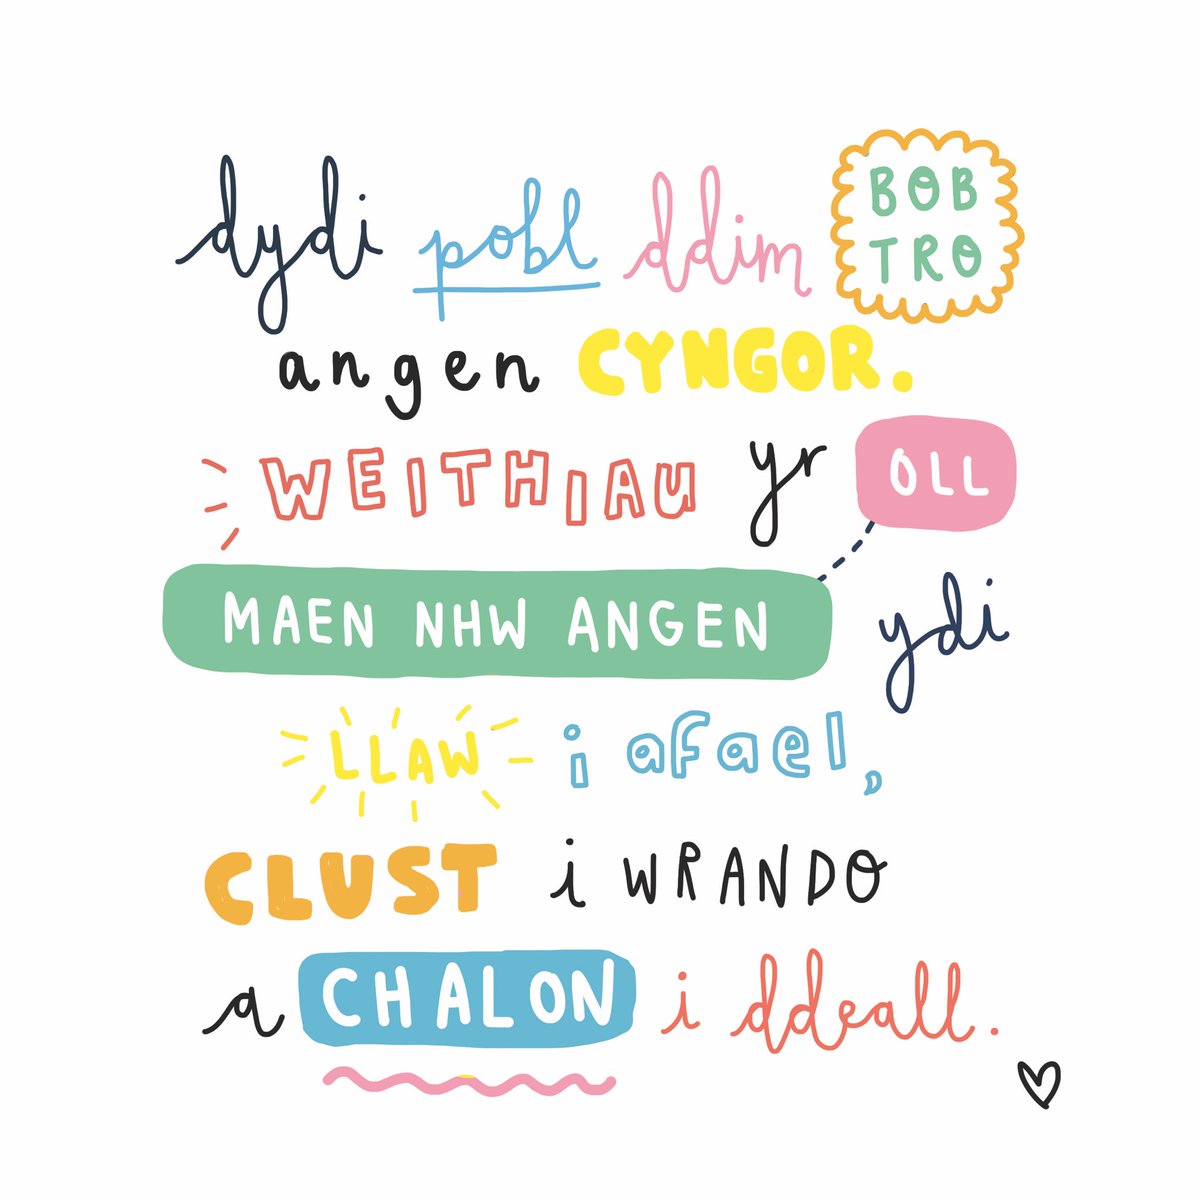 dydi pobl ddim BOB TRO
angen CYNGOR.
WEITHIAU yr OLL
MAEN NHW ANGEN ydi
LLAW i afael,
CLUST i WRANDO
a CHALON i ddeall.